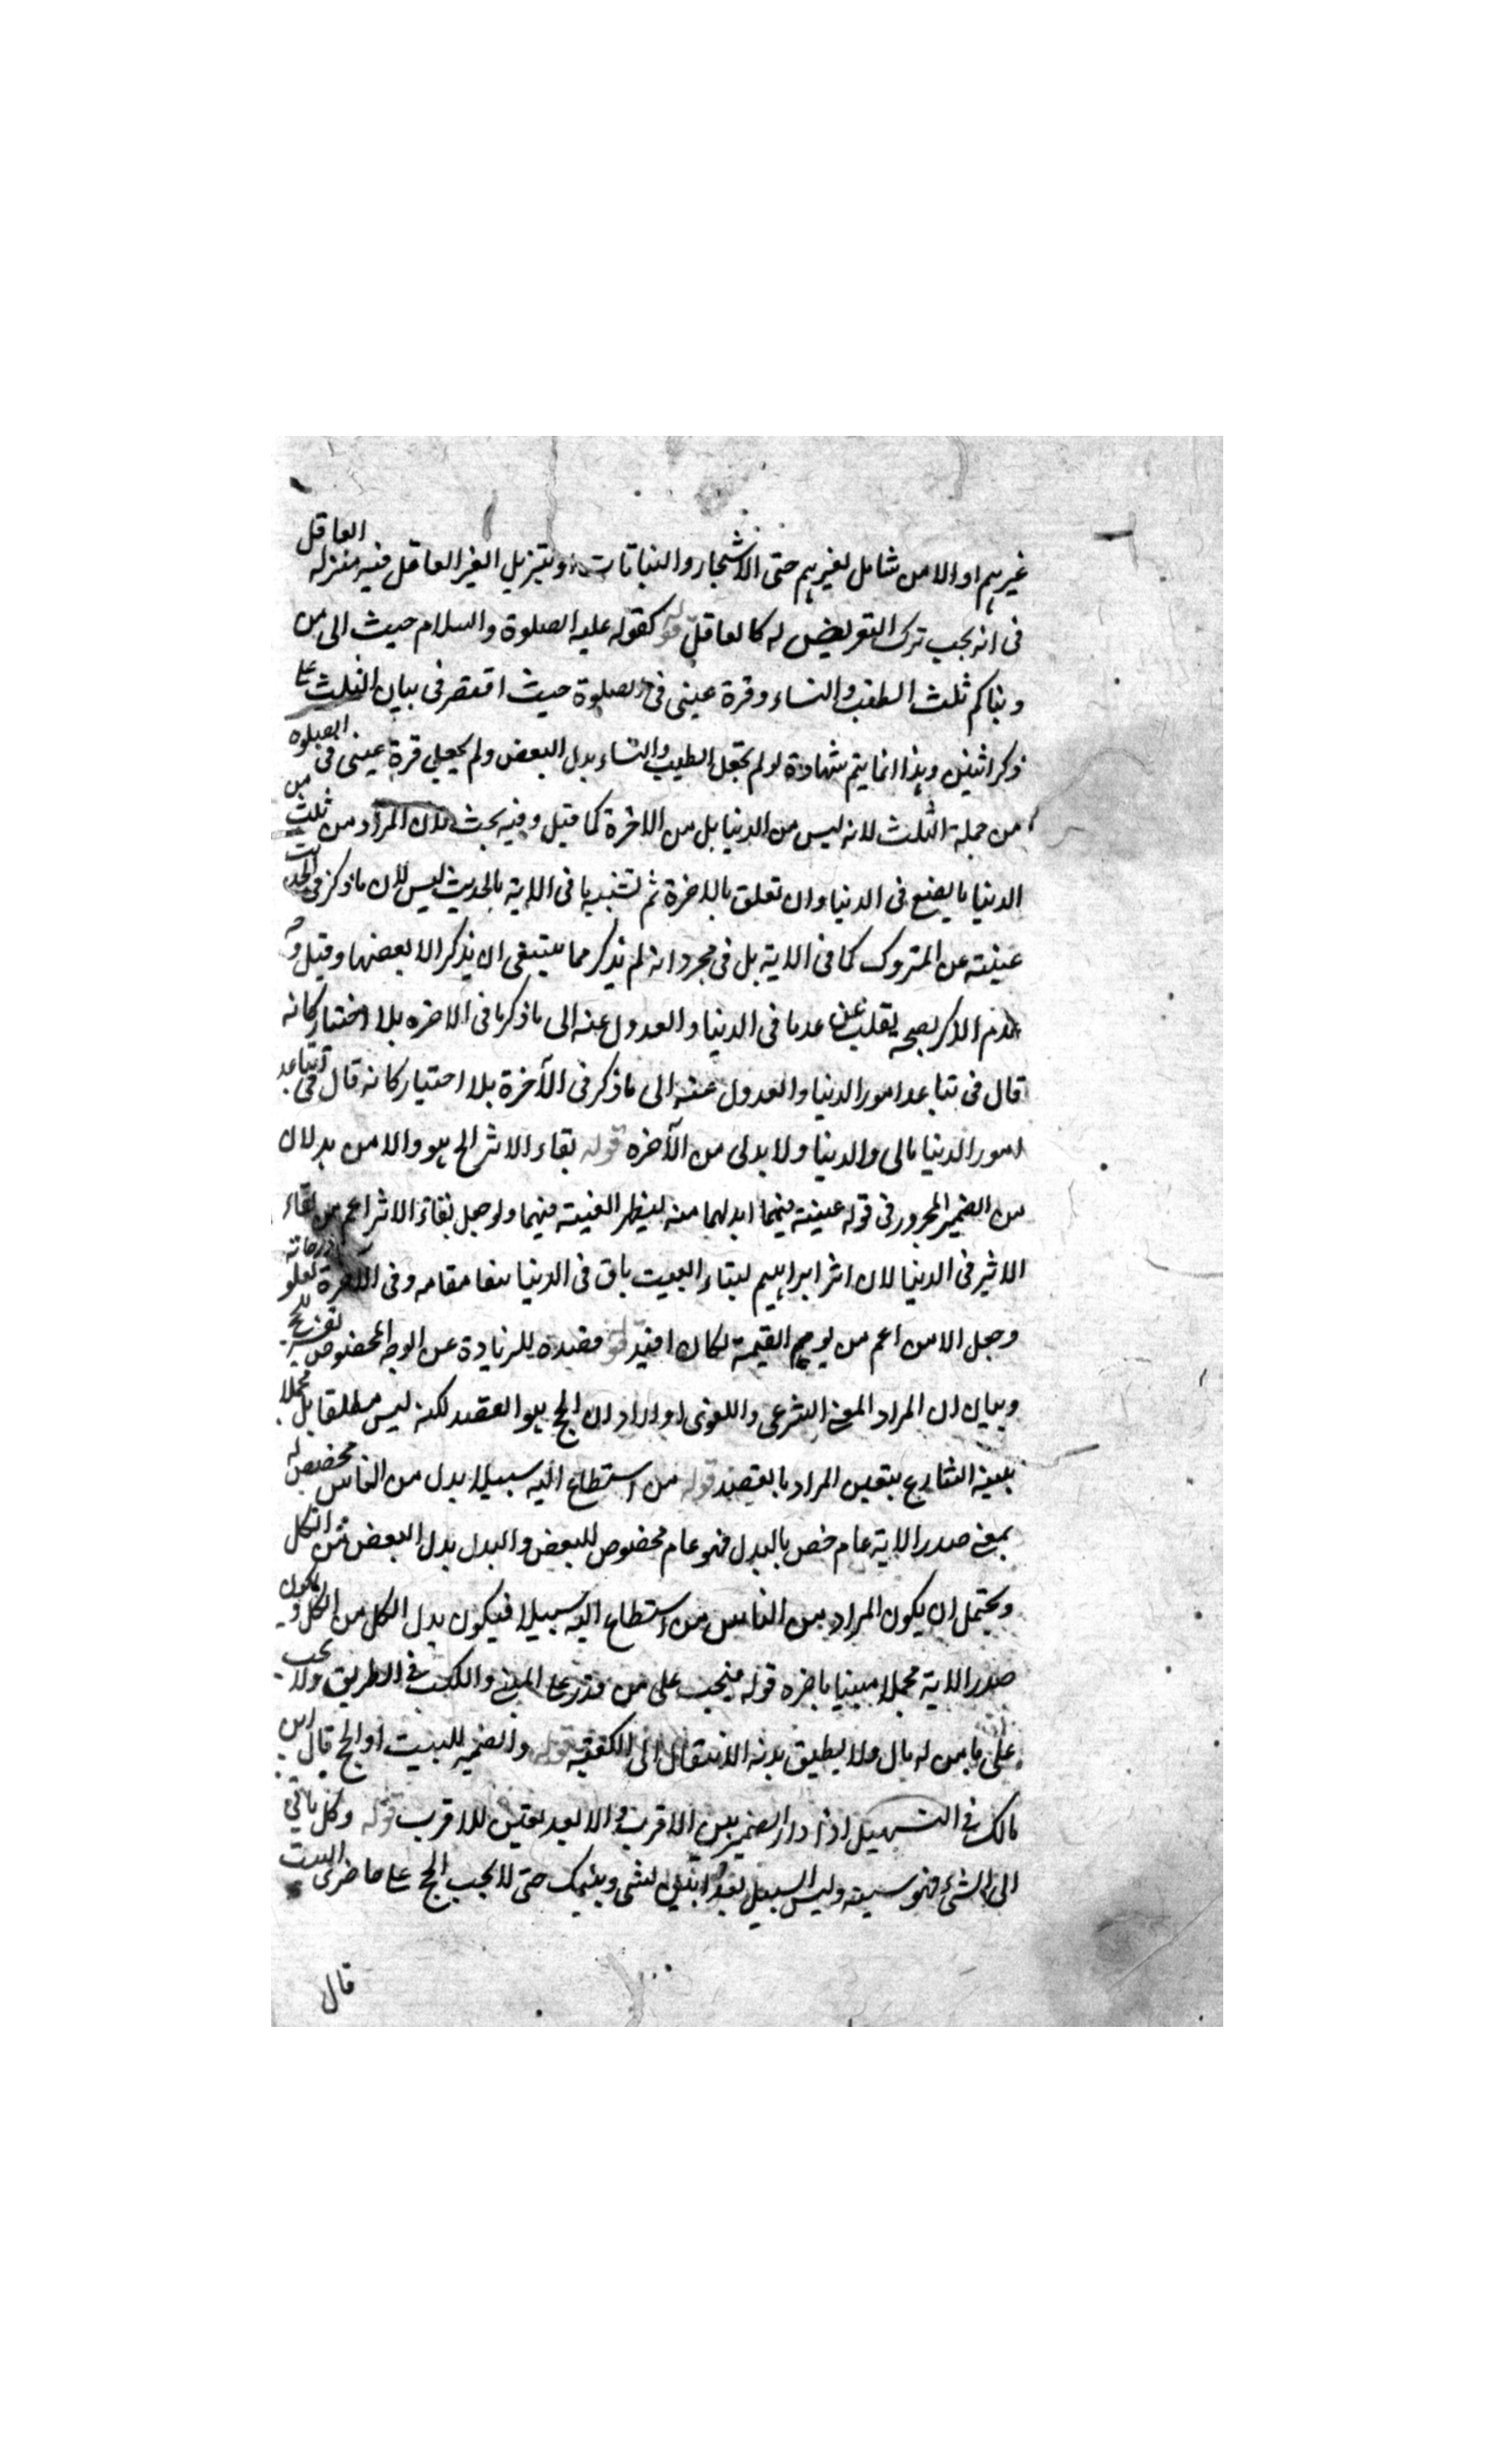 غيرهم او الامن شامل لغيرهم حتى الاشجار والنباتات وتنزيل الغير العاقل فيه منزله العاقل
فى انه يجب ترك التعريض له كالعاقل قوله كقوله عليه الصلوة والسلام حيث الى من
دنياكم ثلث الطيب والنساء وقرة عينى فى الصلوة حيث اقتصر فى بيان الثلث على
ذكر اثنين وهذا انما يتم شهادة لو لم يجعل الطيب والنساء بدل البعض ولم يجعل قرة عينى فى الصلوه
من جملة الثلث لانه ليس من الدنيا بل من الاخرة كما قيل وفيه بحث لان المراد من ثلث من
الدنيا ما يصنع فى الدنيا وان تعلق بالاخرة ثم تشبيه ما فى الاية بالحديث ليس لان ما ذكر فى
غنيته عن المتروك كما فى الاية بل فى مجرد انه لم يذكر مما ينبغى ان يذكر الا بعضها وقيل
عدم الاكر يقلب عن عد ما فى الدنيا والعدول عنه الى ما ذكر ما فى الاخره بلا اختيار كانه
قال فى تباعد امور الدنيا والعدول عنه الى ما ذكر فى الآخرة بلا احتيار كانه قال فى تباعد
امور الدنيا مالى والدنيا ولا بدلى من الآخره قوله بقاء الاثر الخ هو والامن بدلان
من الضمير المجرور فى قوله غنيته فيهما ابدلهما منه ليظهر الغنيته فيهما ولو جعل بقاء الاثر اعم من بقاء
الاثر فى الدنيا لان اثر ابراهيم لبناء البيت باق فى الدنيا مقامه وفى الاخرة لعلو درجاته
وجعل الامن اعم من يوم القيمة لكان افيد قوله قصده للزيادة عن الوجه المخصوص
وبيان ان المراد المعنى الشرعى واللغوى او اراد ان الحج هو القصد لكنه ليس مطلقا بل مجملا
بينه الشارع بتعين المراد بالقصد قوله من استطاع اليه سبيلا بدل من الناس مخصص له
بمعنى صدر الاية عام خص بالبدل فهو عام مخصوص للبعض والبدل بدل البعض من الكل
ويحتمل ان يكون المراد من الناس من استطاع اليه سبيلا فيكون بدل الكل من الكل ويكون
صدر الاية مجملا مبينا باخره قوله فيجب على من قدر على المشى والكسب فى الطريق ولا يجب
على من له مال ولا يطيق بدنه الانتقال الى الكعبة قوله والضمير للبيت او الحج قال ابن
مالك فى التسهيل اذا دار الضمير بين الاقرب والابعد تعين للاقرب قوله وكل ما
الى الشى فهو سبيله وليس السبيل حتى لا يجب الحج على حاضرى البيت
قال